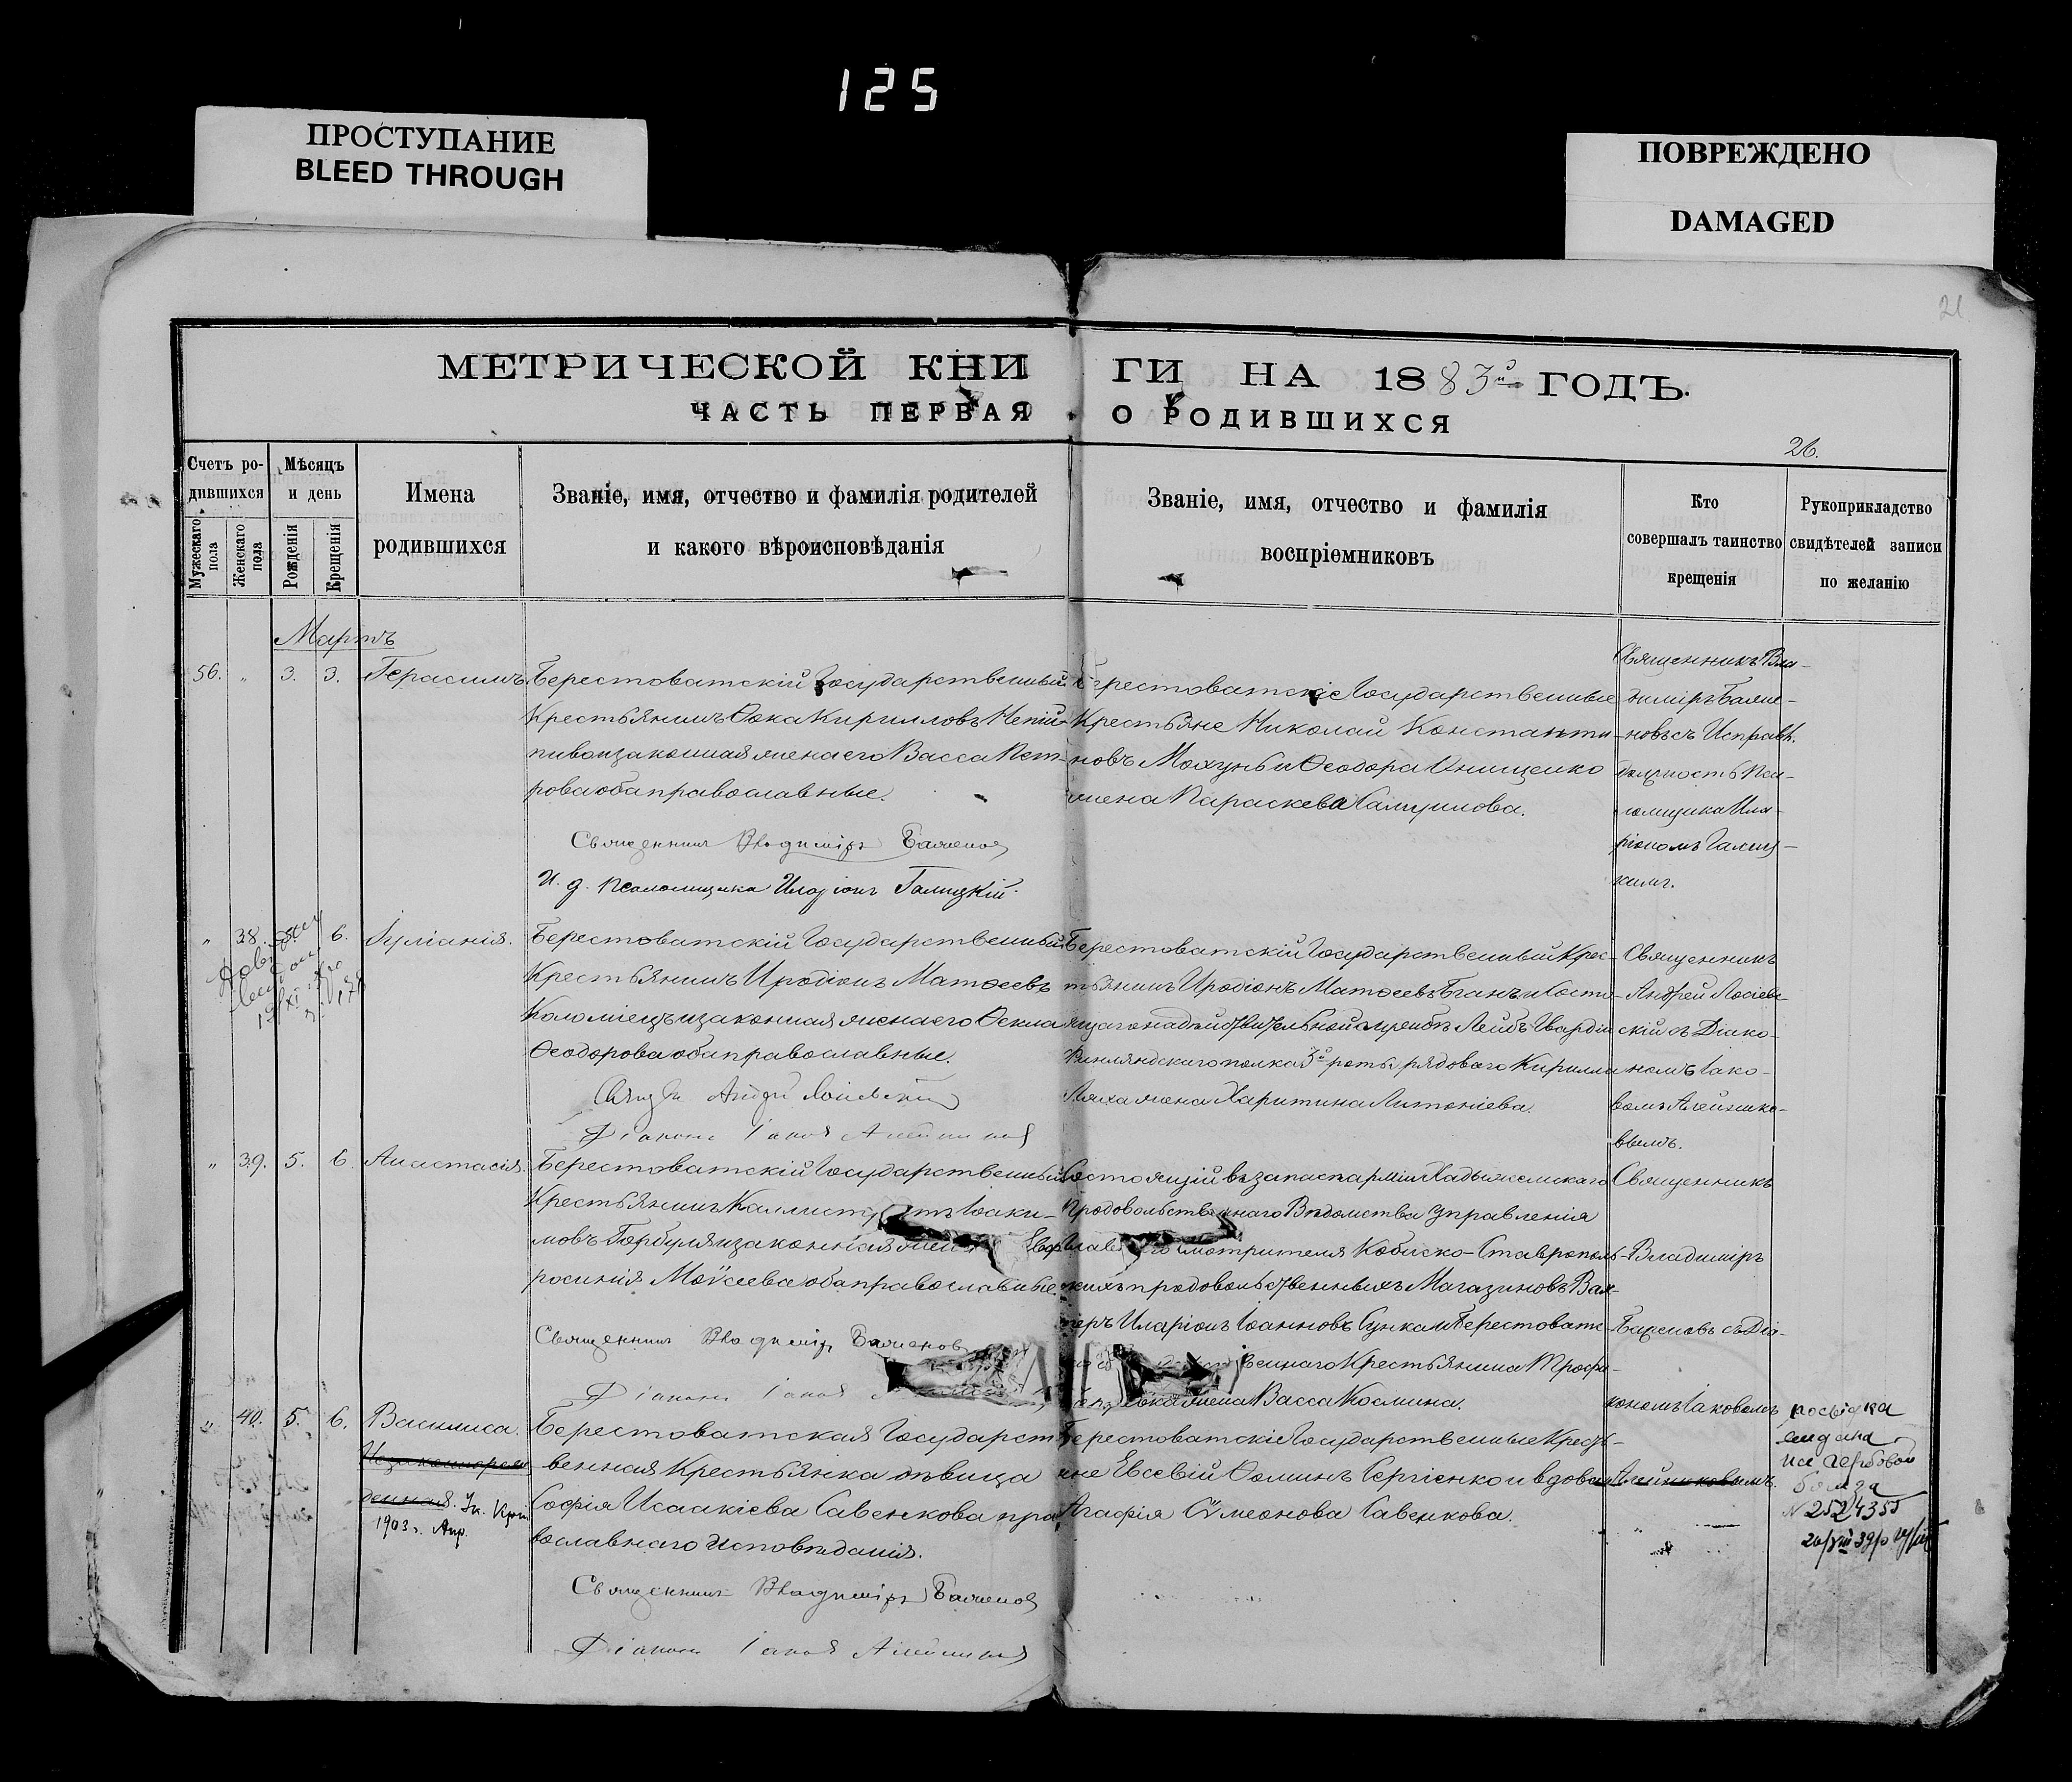 125
ПРОСТУПАНИЕ
BLEED THROUGH
ПОВРЕЖДЕНО
DAMAGED
21
МЕТРИЧЕСКОЙ КНИГИ НА 1883й ГОДЪ.
ЧАСТЬ ПЕРВАЯ О РОДИВШИХСЯ
26.
Счетъ ро-
дившихся
Мужескаго пола
Женскаго пола
Мѣсяцъ
и день
Рожденія
Крещенія
Имена
родившихся
Званіе, имя, отчество и фамилія родителей
и какого вѣроисповѣданія
Званіе, имя, отчество и фамилія
воспріемниковъ
Кто
совершалъ таинство
крещенія
Рукоприкладство
свидѣтелей записи
по желанію
Мартъ
56. „ 3. 3. Герасимъ.
Берестоватскій Государственный
Крестьянинъ Ѳока Кирилловъ
и законная жена его Васса Пет-
рова оба православные.
Священникъ Владиміръ Баженовъ
И. д. псаломщика Иларіонъ Галицкій.
Берестоватскіе Государственные
Крестьяне Николай Константи-
новъ и Ѳеодора Онищенко
жена Параскева Самуилова.
Священникъ Вла-
диміръ Баже-
новъ съ Исправл.
должность Пса-
ломщика Ила-
ріономъ Галиц-
кимъ.
„ 38. 6. Іуліанія.
Берестоватскій Государственный
Крестьянинъ Иродіонъ Матѳеевъ
Коломіецъ и законная жена его Ѳекла
Ѳеодорова оба православные.
Діаконъ Іаковъ Алейниковъ
Берестоватскій Государственный Крес-
тьянинъ Иродіонъ Матѳеевъ и Состо-
ящаго на дѣйствительной службѣ Лейбъ Гвардіи
Финляндскаго полка 3й роты рядоваго Кирилла
Ляха жена Харитина
Священникъ
Андрей
скій съ Діако-
номъ Іако-
вомъ Алейнико-
вымъ.
„ 39. 5. 6. Анастасія.
Берестоватскій Государственный
Крестьянинъ Іоаки-
мовъ Горбуля и законная Евф-
росинія Моѵсеева оба православные.
Священникъ Владиміръ Баженовъ
Діаконъ Іаковъ
Состоящій въ запасѣ арміи
Продовольственнаго Вѣдомства Управленія
смотрителя Ставрополь-
скихъ продовольственныхъ Магазиновъ Вах-
теръ Иларіонъ Іоанновъ и Берестоват-
Крестьянина Трофи-
жена Васса Космина.
Священникъ
Владиміръ
Баженовъ съ Діа-
кономъ Іаковомъ
Алейниковымъ.
„ 40. 5. 6. Василиса.
Незаконнорож-
денная.
1903 г. Апр.
Берестоватская Государст-
венная Крестьянка дѣвица
Софія Исаакіева Савенкова пра-
вославнаго исповѣданія.
Священникъ Владиміръ Баженовъ
Діаконъ Іаковъ Алейниковъ
Берестоватскіе Государственные Крестья-
не Евсевій Ѳоминъ Сергіенко и вдова
Агафія Сѵмеонова Савенкова.
выдана
на гербовой
№ 2524355